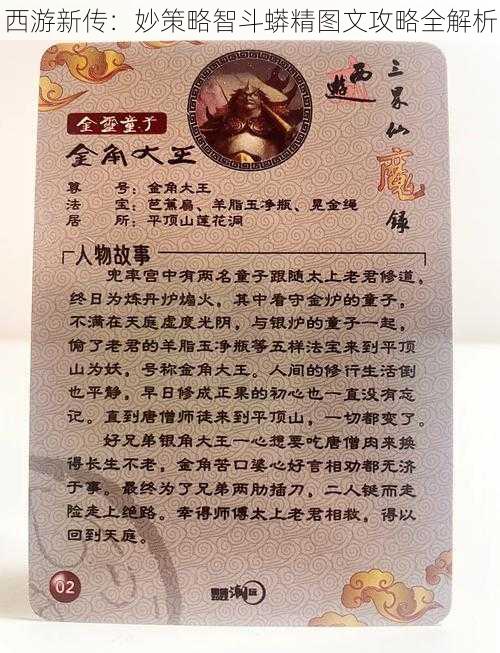 西游新传：妙策略智斗蟒精图文攻略全解析
西遊
三界仙魔録
金靈童子
金角大王
尊　　号：金角大王
法　　宝：芭蕉扇、羊脂玉净瓶、晃金绳
居　　所：平顶山莲花洞
人物故事
兜率宫中有两名童子跟随太上老君修道，
终日为炼丹炉煽火，其中看守金炉的童子，
不满在天庭虚度光阴，与银炉的童子一起，
偷了老君的羊脂玉净瓶等五样法宝来到平顶
山为妖，号称金角大王。人间的修行生活倒
也平静，早日修成正果的初心也一直没有忘
记。直到唐僧师徒来到平顶山，一切都变了。
好兄弟银角大王一心想要吃唐僧肉来换
得长生不老，金角苦口婆心好言相劝都无济
于事。最终为了兄弟两肋插刀，二人铤而走
险走上绝路。幸得师傅太上老君相救，得以
回到天庭。
02